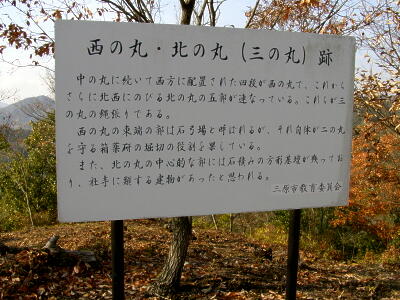 西の丸・北の丸（三の丸）跡
中の丸に続いて西方に配置された四段が西の丸で、これから
さらに北西にのびる北の丸の五郭が連なっている。これらが三
の丸の縄張りである。
西の丸の東端の郭は石弓場と呼ばれるが、それ自体が二の丸
を守る箱薬研の堀切の役割を果している。
また、北の丸の中心的な郭には石積みの方形基壇が残ってお
り、社寺に類する建物があったと思われる。
三原市教育委員会